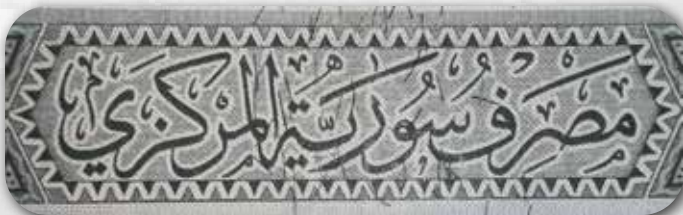 مَصْرِفُ سُورِيَّةَ الْمَرْكَزِي